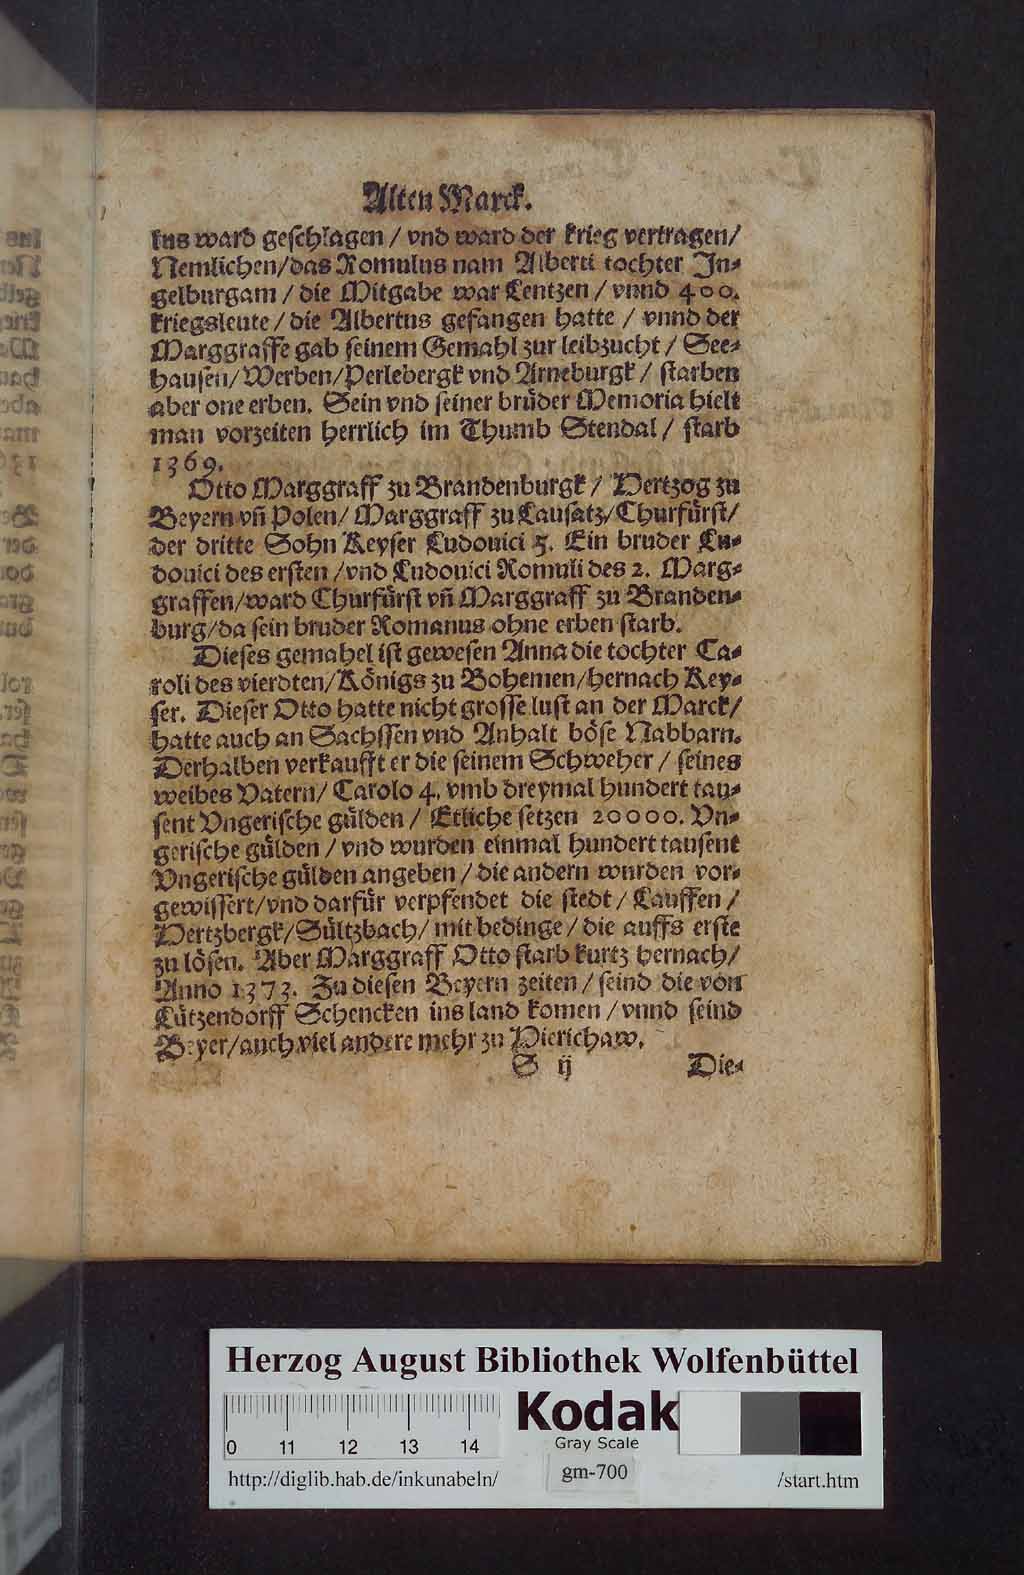 Alten Marck.
kus ward geschlagen / vnd ward der krieg vertragen/
Nemlichen/das Romulus nam Alberti tochter In⸗
gelburgam / die Mitgabe war Lentzen / vnnd 400.
kriegsleute / die Albertus gefangen hatte / vnnd der
Marggraffe gab seinem Gemahl zur leibzucht / See⸗
hausen/Werben/Perlebergk vnd Arneburgk / starben
aber one erben. Sein vnd seiner brüder Memoria hielt
man vorzeiten herrlich im Thumb Stendal / starb
1369.
Otto Marggraff zu Brandenburgk / Hertzog zu
Beyern vñ Polen/ Marggraff zu Lausatz/Churfürst/
der dritte Sohn Keyser Ludouici 5. Ein bruder Lu⸗
douici des ersten /vnd Ludouici Romuli des 2. Marg⸗
graffen/ward Churfürst vñ Marggraff zu Branden⸗
burg/da sein bruder Romanus ohne erben starb.
Dieses gemahel ist gewesen Anna die tochter Ca⸗
roli des vierdten/Königs zu Bohemen/hernach Key⸗
ser. Dieser Otto hatte nicht grosse lust an der Marck/
hatte auch an Sachssen vnd Anhalt böse Nabbarn.
Derhalben verkaufft er die seinem Schweher / seines
weibes Vatern/ Carolo 4. vmb dreymal hundert tau⸗
sent Vngerische gülden / Etliche setzen 20000. Vn⸗
gerische gülden / vnd wurden einmal hundert tausent
Vngerische gülden angeben / die andern wurden vor⸗
gewissert/vnd darfür verpfendet die stedt / Lauffen /
Hertzbergk/Sültzbach/ mit bedinge / die auffs erste
zu lösen. Aber Marggraff Otto starb kurtz hernach/
Anno 1373. Zu diesen Beyern zeiten / seind die von
Lützendorff Schencken ins land komen / vnnd seind
Beyer/auch viel andere mehr zu Hierichaw.
S ij Die⸗
Herzog August Bibliothek Wolfenbüttel
0 11 12 13 14
Kodak
Gray Scale
http://diglib.hab.de/inkunabeln/ gm-700 /start.htm